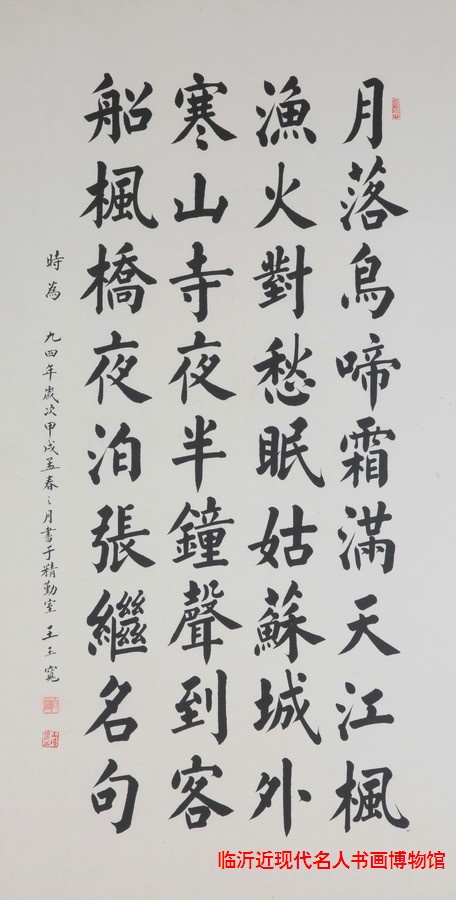 月落烏啼霜滿天江楓
漁火對愁眠姑蘇城外
寒山寺夜半鐘聲到客
船楓橋夜泊張繼名句
時為 九四年歲次甲戌孟春之月書于精勤室 王玉寬
临沂近现代名人书画博物馆